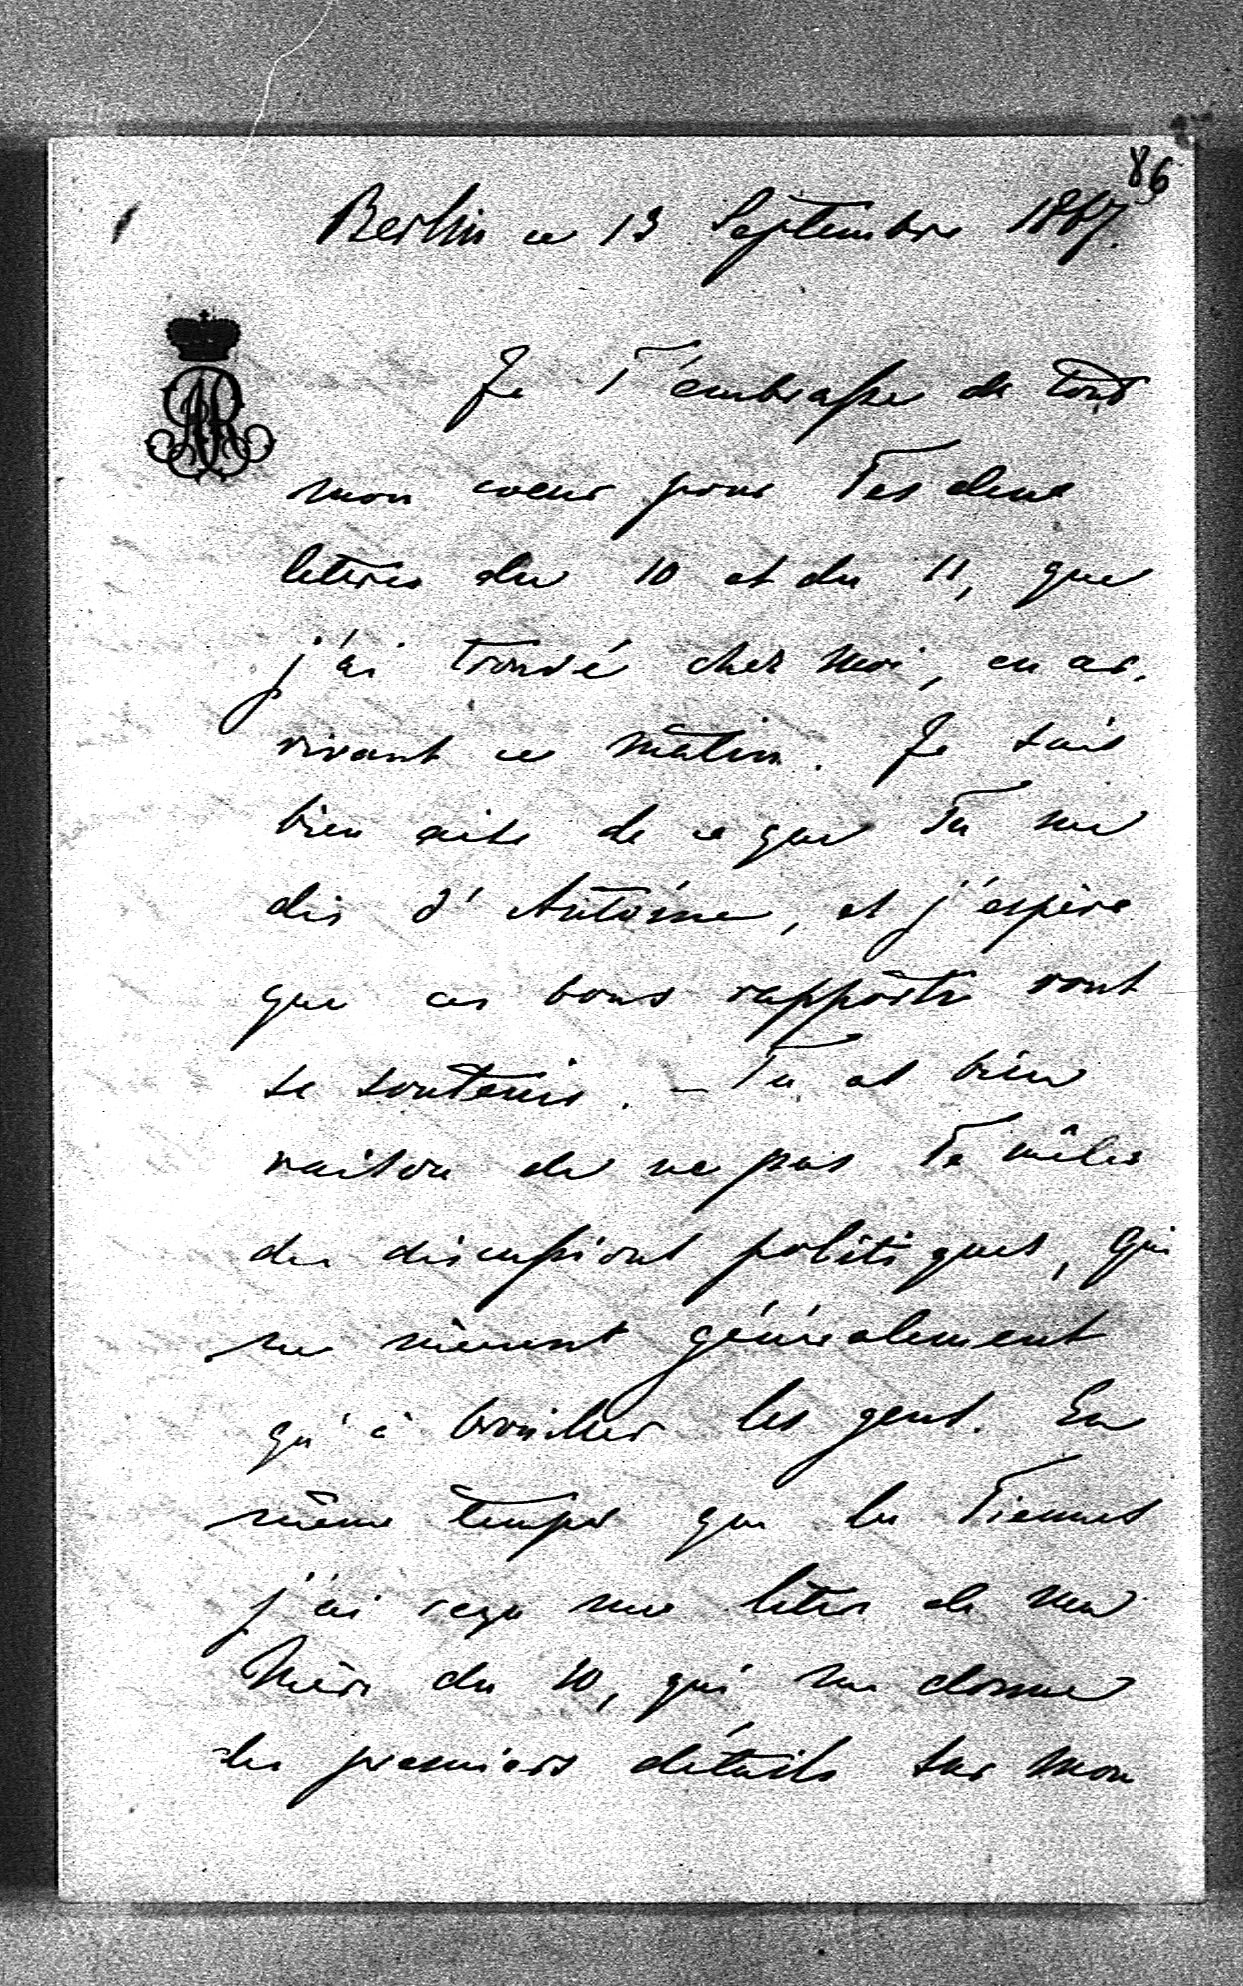 86
Berlin ce 13 Septembre 1867.
Je T'embrasse de tout
mon coeur pour Tes deux
lettres du 10 et du 11, que
j'ai trouvé chez moi, en ar-
rivant ce matin. Je suis
bien aise de ce que Tu me
dis d'Antoine, et j'espère
que ces bons rapports vont
se soutenir. – Tu as bien
raison de ne pas Te mêler
des discussions politiques, qui
ne mènent généralement
qu'à brouiller les gens. En
même temps que les Tiennes
j'ai reçu une lettre de ma
Mère du 10, qui me donne
les premiers détails sur mon